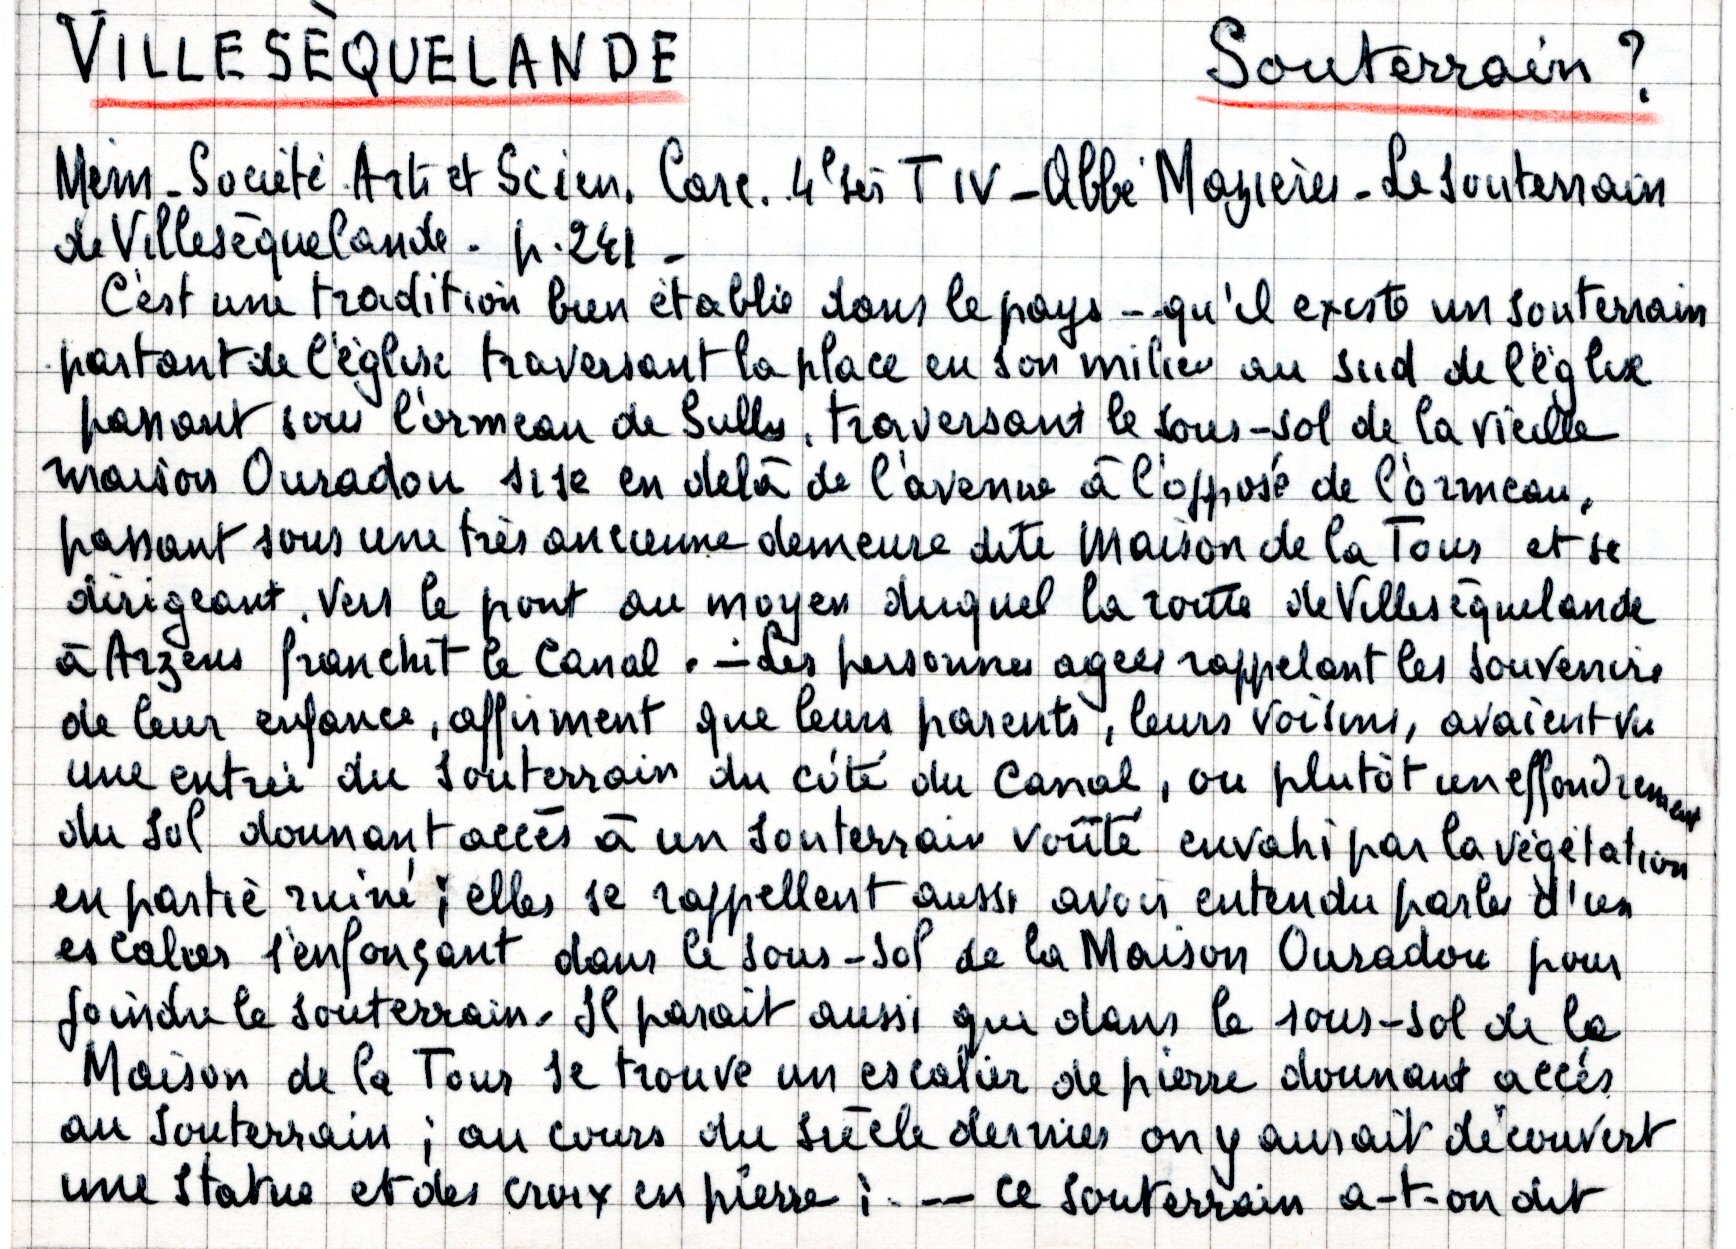 VILLESÈQUELANDE Souterrain ?
Mém - Société Arts et Scien. Carc. 4e sér T IV - Abbé Mazières - Le souterrain
de Villesèquelande - p. 241 -
C'est une tradition bien établie dans le pays -- qu'il existe un souterrain
partant de l'église traversant la place en son milieu au sud de l'église
passant sous l'ormeau de Sully, traversant le sous-sol de la vieille
maison Ouradou sise en delà de l'avenue à l'opposé de l'ormeau,
passant sous une très ancienne demeure dite Maison de la Tour et se
dirigeant vers le pont au moyen duquel la route de Villesèquelande
à Arzens franchit le Canal . - Les personnes agées rappelant les souvenirs
de leur enfance, affirment que leurs parents, leurs voisins, avaient vu
une entrée du souterrain du côté du Canal, ou plutôt un effondrement
du sol donnant accès à un souterrain voûté envahi par la végétation
en partie ruiné ; elles se rappellent aussi avoir entendu parler d'un
escalier s'enfonçant dans le sous-sol de la Maison Ouradou pour
joindre le souterrain. Il parait aussi que dans le sous-sol de la
Maison de la Tour se trouve un escalier de pierre donnant accès
au souterrain ; au cours du siècle dernier on y aurait découvert
une statue et des croix en pierre ; -- ce souterrain a-t-on dit